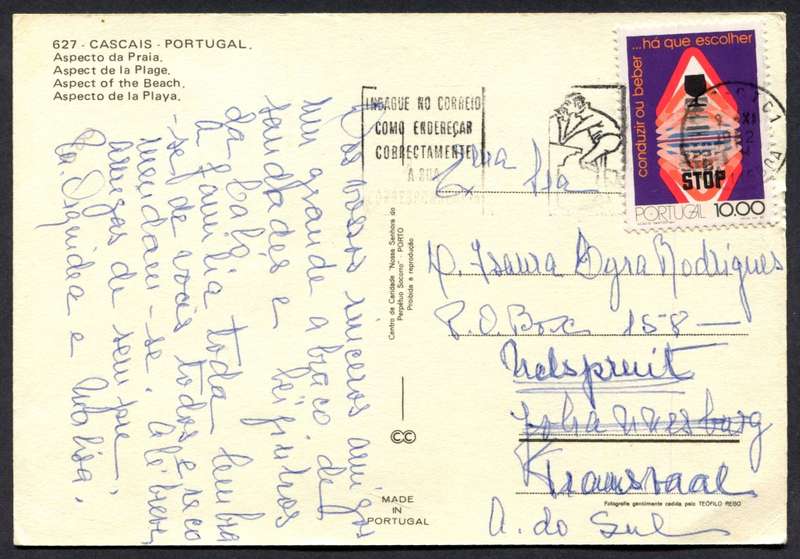 627 - CASCAIS - PORTUGAL.
Aspecto da Praia.
Aspect de la Plage.
Aspect of the Beach.
Aspecto de la Playa.
Dos vossos sinceros amigos
um grande abraço de
saudades e beijinhos
da Gabi
a família toda lembra
-se de vocês todos e reco
mendam-se. Até breve,
amigos de sempre
Eu. Siquidea e
INDAGUE NO CORREIO
COMO ENDEREÇAR
CORRECTAMENTE
A SUA
Centro de Caridade "Nossa Senhora do
Perpétuo Socorro" - PORTO
Proibida a reprodução
CC
MADE
IN
PORTUGAL
conduzir ou beber
...há que escolher
STOP
PORTUGAL 10.00
Exma Sra
D. Isaura Ayra Rodrigues
P.O. Box 158 —
Nelspruit
Johannesburg
Transvaal
A. do Sul
Fotografia gentilmente cedida, pelo TEÓFILO REGO